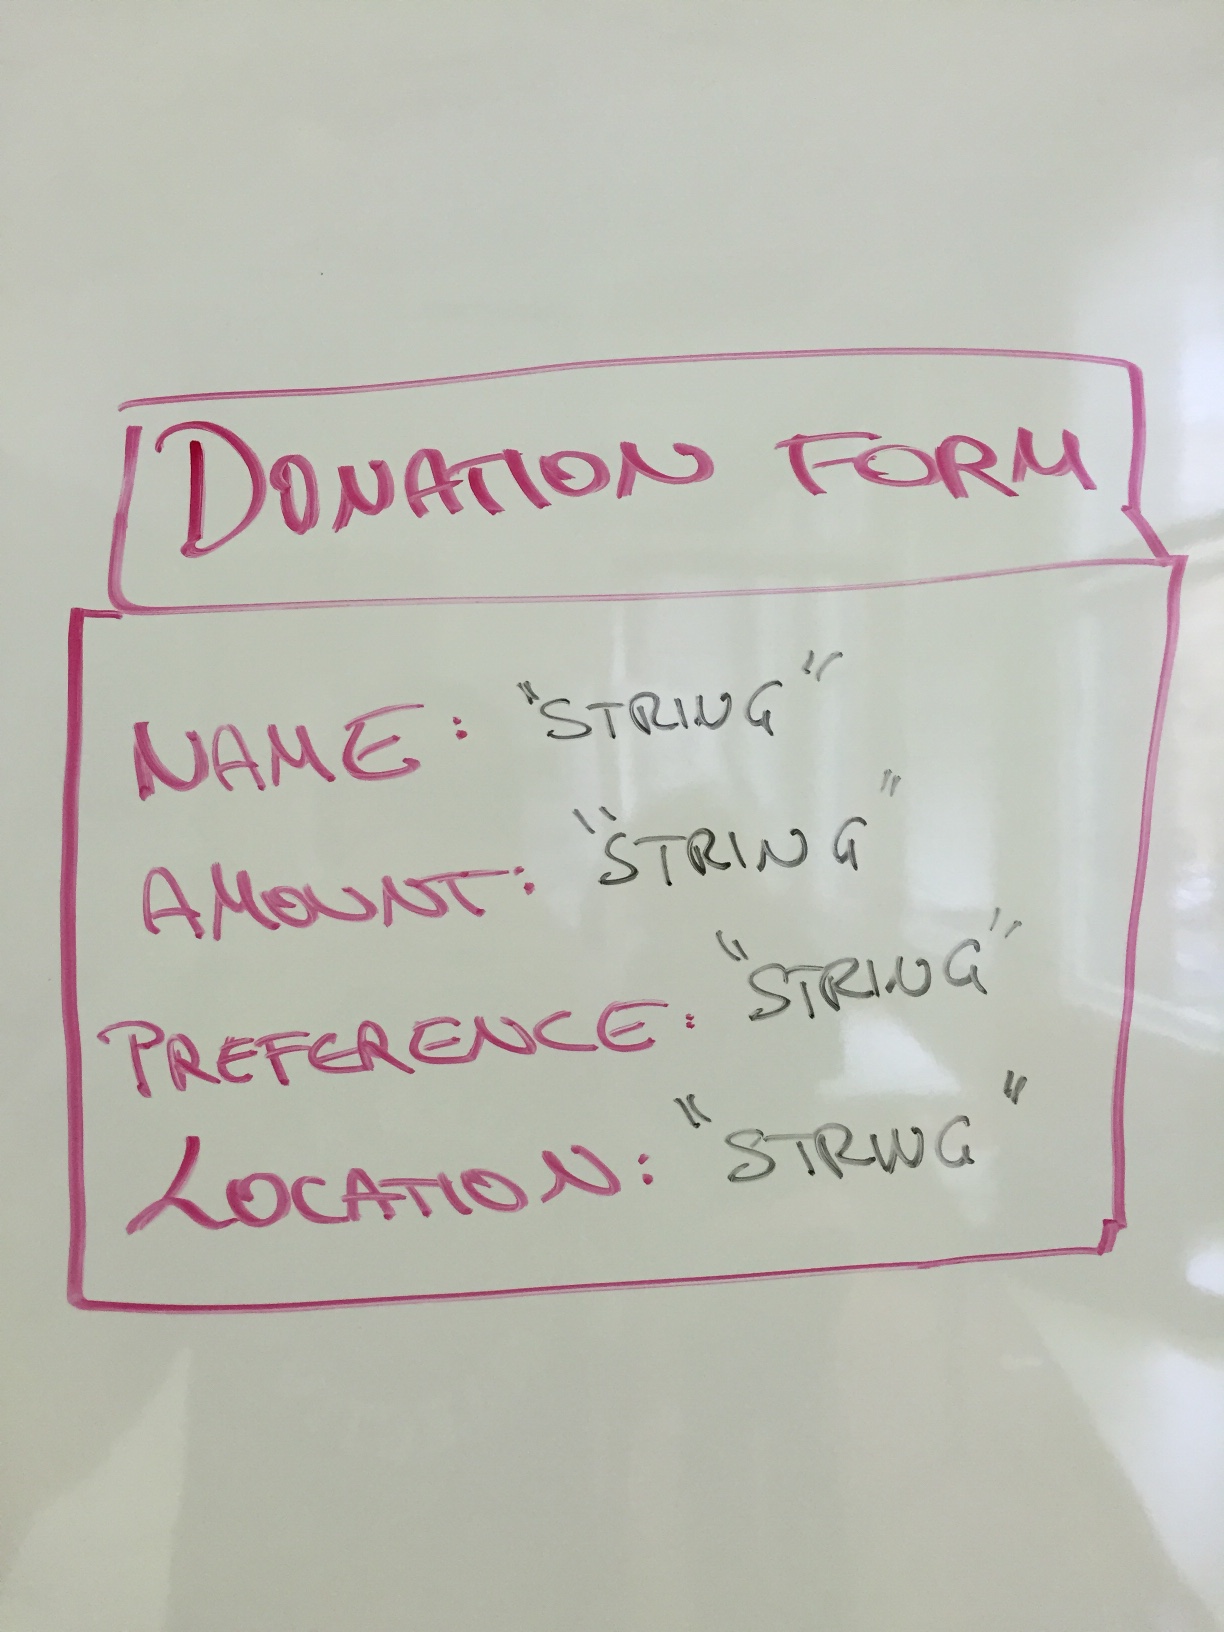 DONATION FORM
NAME: "STRING"
AMOUNT: "STRING"
PREFERENCE: "STRING"
LOCATION: "STRING"